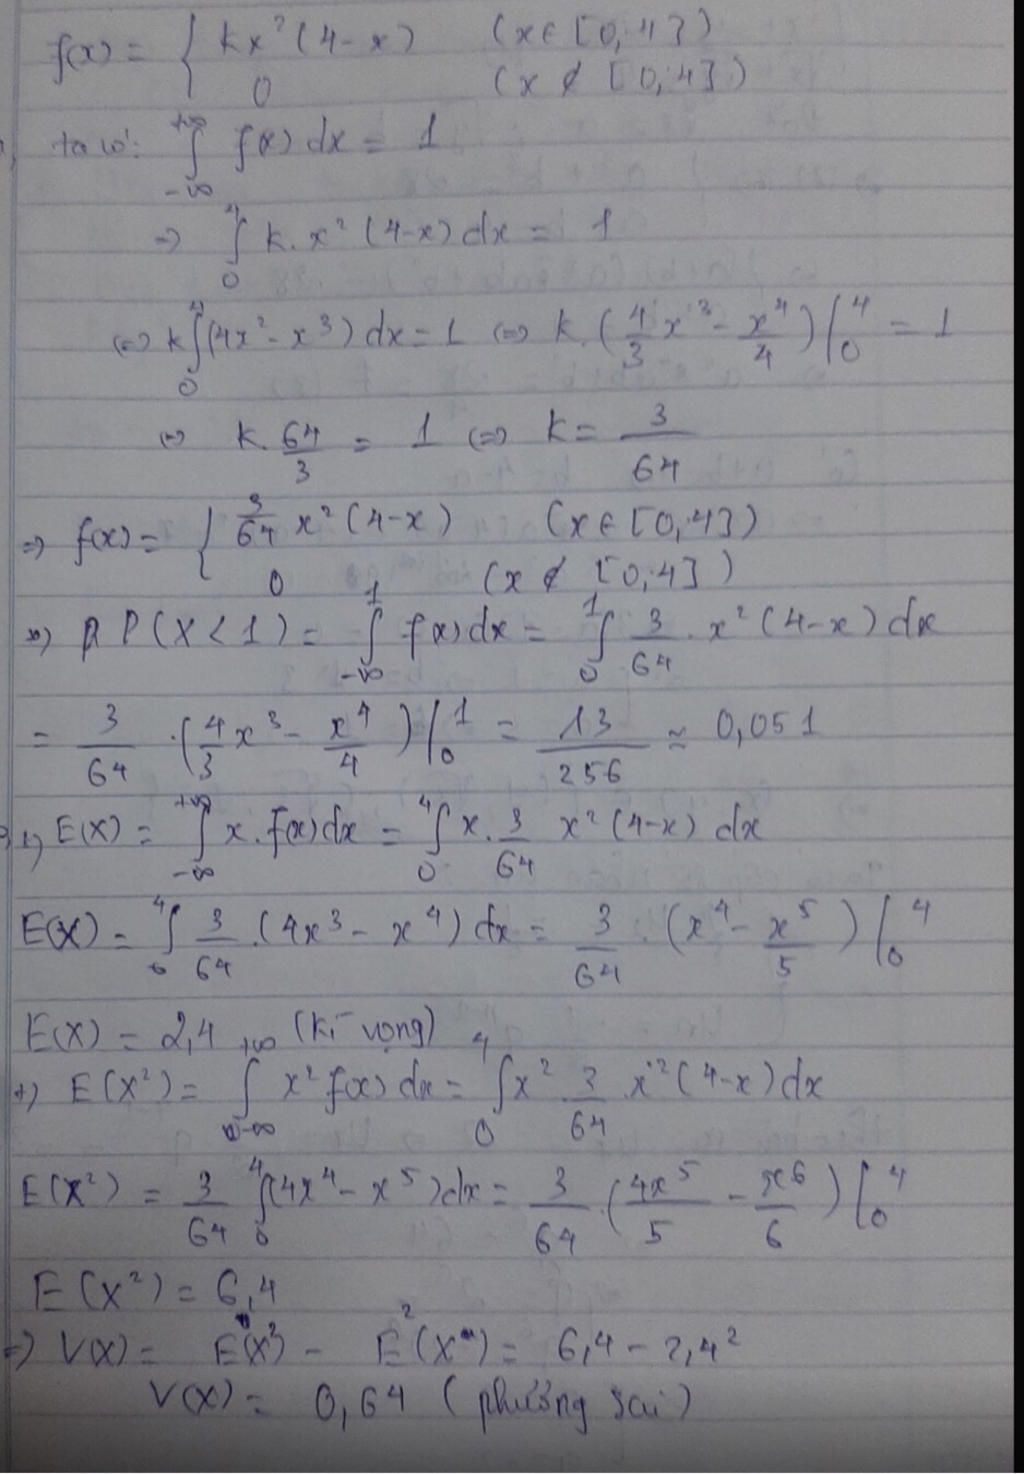 f(x) = { kx²(4-x) (x ∈ [0,4])
0 (x ∉ [0,4])
ta có: ∫_{-∞}^{+∞} f(x) dx = 1
=> ∫_0^4 k.x²(4-x) dx = 1
<=> k∫_0^4 (4x² - x³) dx = 1 <=> k.(4/3 x³ - x⁴/4)|_0^4 = 1
<=> k. 64/3 = 1 <=> k = 3/64
=> f(x) = { 3/64 x²(4-x) (x ∈ [0,4])
0 (x ∉ [0,4])
P(X<1) = ∫_{-∞}^1 f(x)dx = ∫_0^1 3/64 . x²(4-x) dx
= 3/64 .(4/3 x³ - x⁴/4)|_0^1 = 13/256 ≈ 0,051
+) E(X) = ∫_{-∞}^{+∞} x.f(x)dx = ∫_0^4 x. 3/64 x²(4-x) dx
E(X) = ∫_0^4 3/64 .(4x³ - x⁴) dx = 3/64 .(x⁴ - x⁵/5)|_0^4
E(X) = 2,4 (kì vọng)
+) E(X²) = ∫_{-∞}^{+∞} x² f(x) dx = ∫_0^4 x² 3/64 .x²(4-x)dx
E(X²) = 3/64 ∫_0^4 (4x⁴ - x⁵)dx = 3/64 .(4x⁵/5 - x⁶/6)|_0^4
E(X²) = 6,4
=> V(X) = E(X²) - E²(X) = 6,4 - 2,4²
V(X) = 0,64 (phương sai)